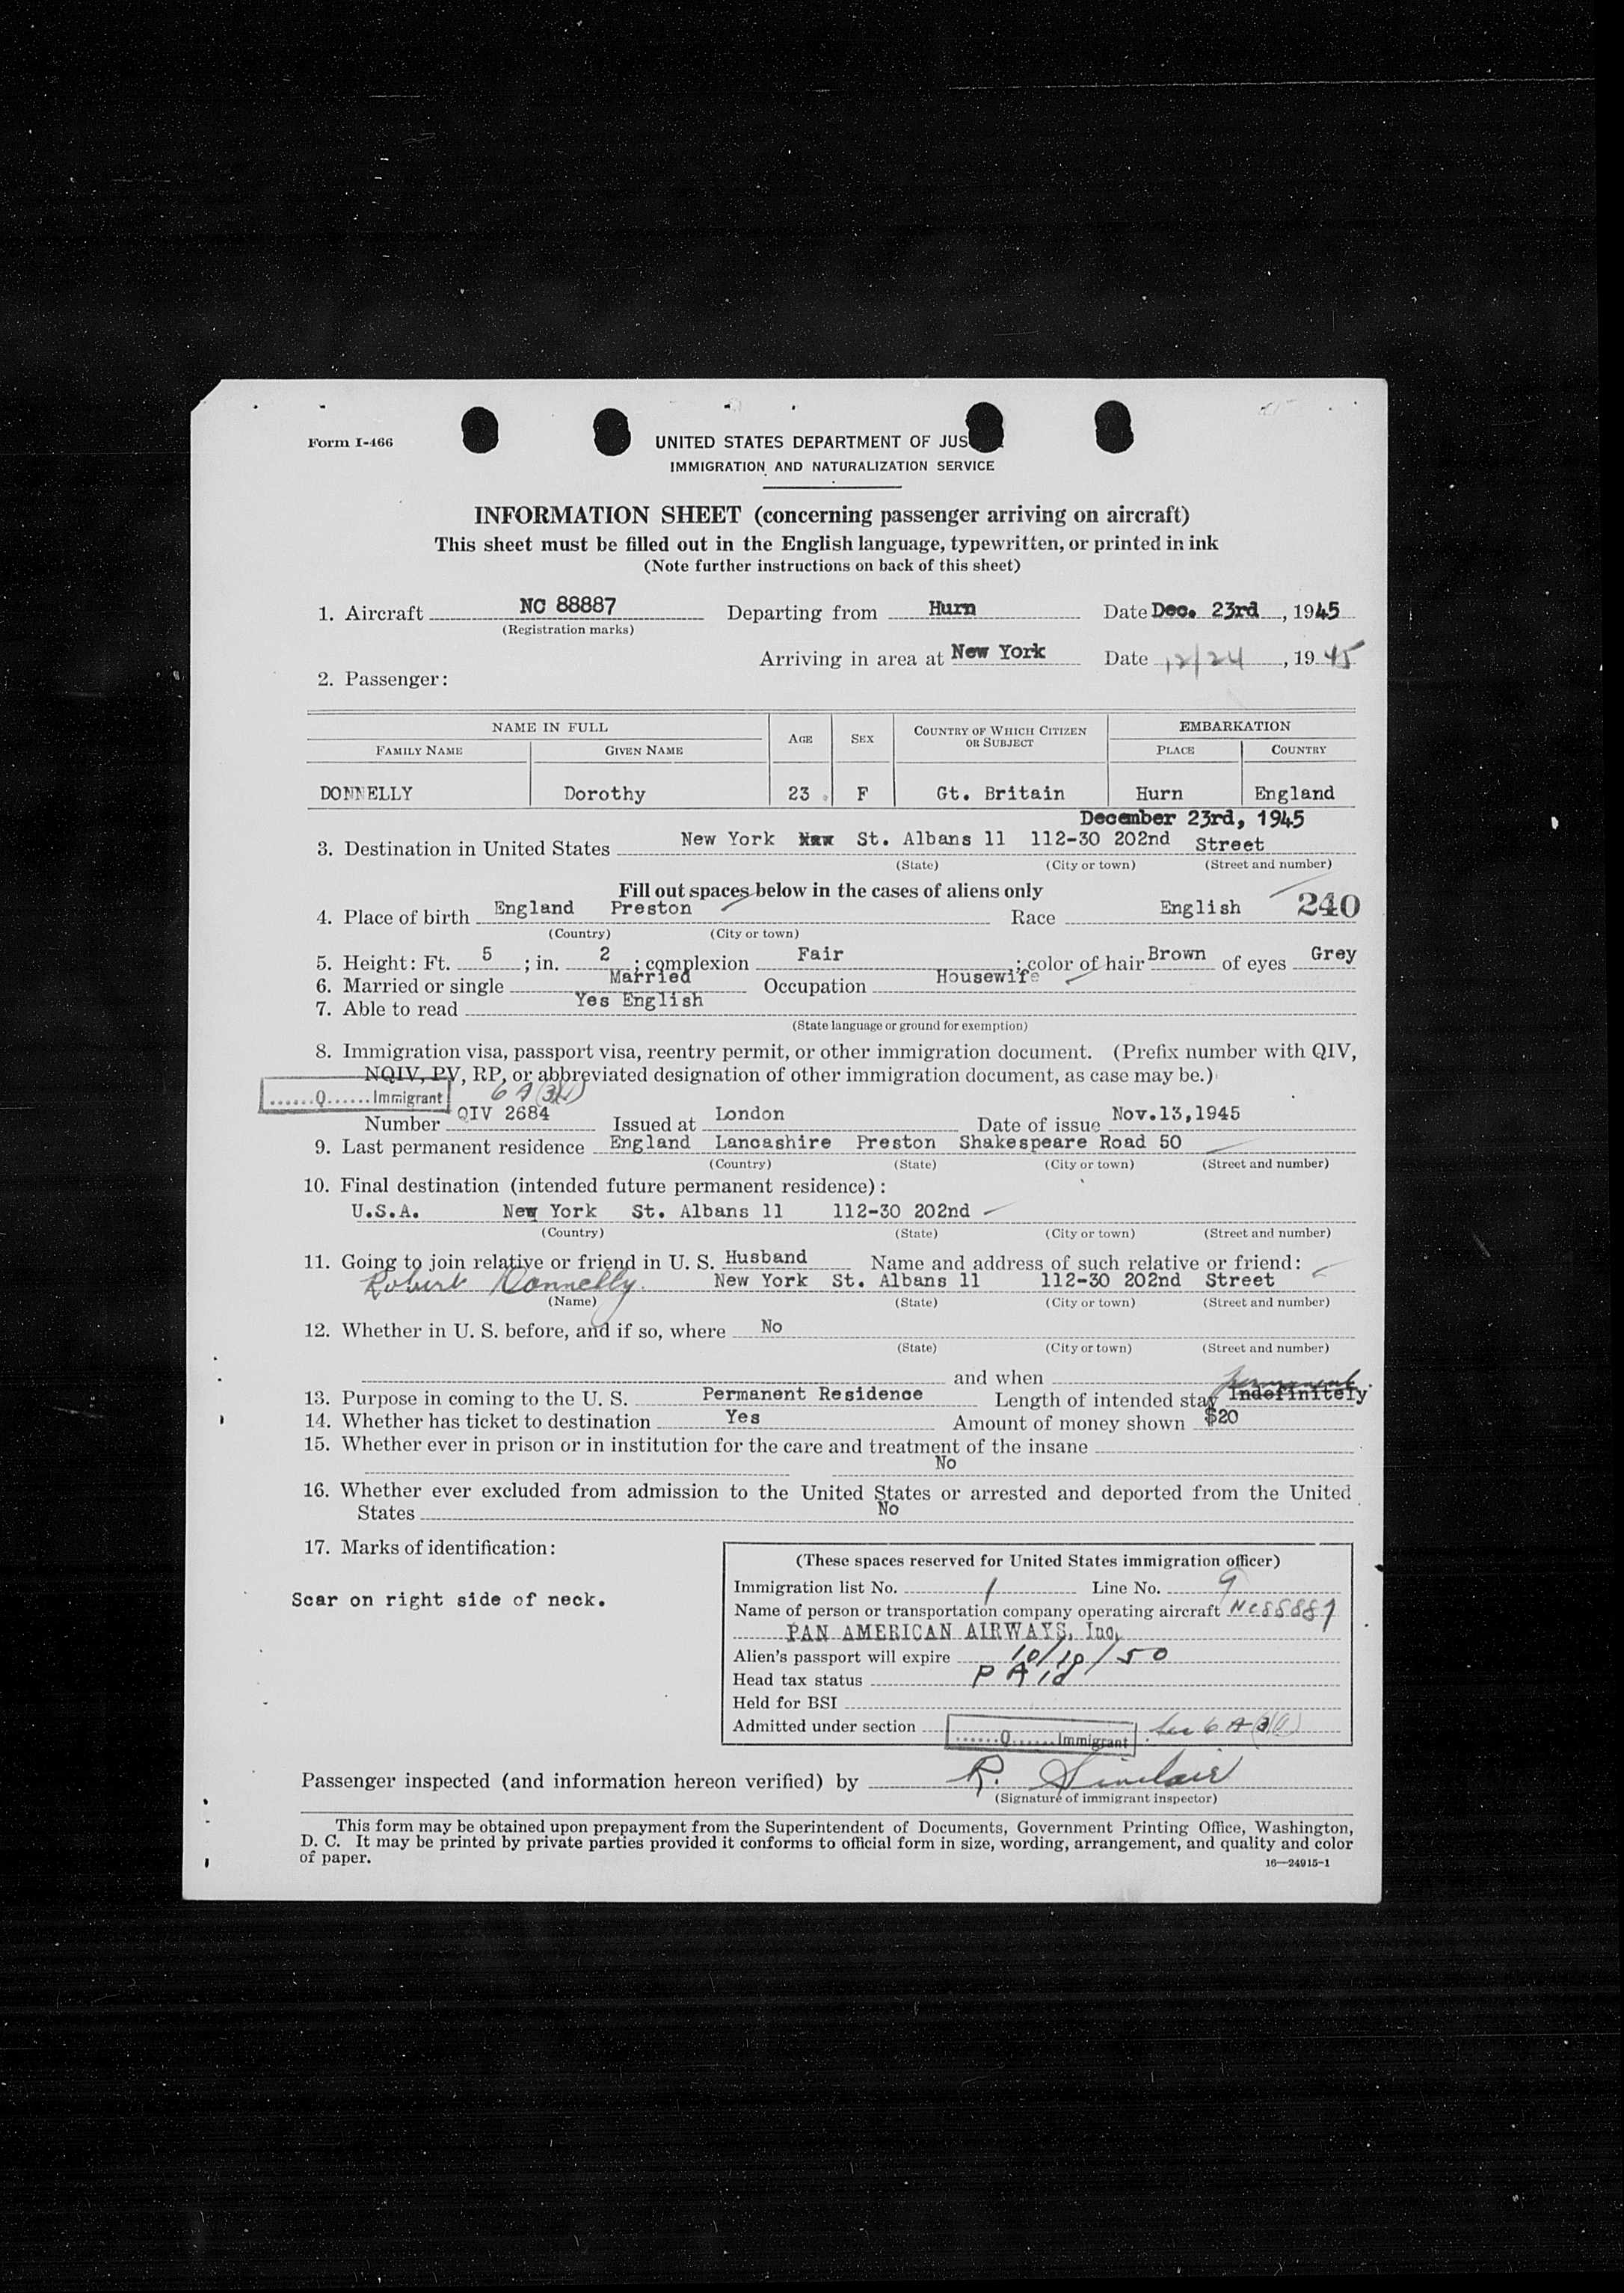 Form I-466
UNITED STATES DEPARTMENT OF JUS
IMMIGRATION AND NATURALIZATION SERVICE
INFORMATION SHEET (concerning passenger arriving on aircraft)
This sheet must be filled out in the English language, typewritten, or printed in ink
(Note further instructions on back of this sheet)
1. Aircraft NC 88887 Departing from Hurn Date Dec. 23rd, 1945
(Registration marks)
Arriving in area at New York Date 12/24, 1945
2. Passenger:
NAME IN FULL AGE SEX COUNTRY OF WHICH CITIZEN OR SUBJECT EMBARKATION
FAMILY NAME GIVEN NAME PLACE COUNTRY
DONNELLY Dorothy 23 F Gt. Britain Hurn England
December 23rd, 1945
3. Destination in United States New York St. Albans 11 112-30 202nd Street
(State) (City or town) (Street and number)
Fill out spaces below in the cases of aliens only
4. Place of birth England Preston Race English 240
(Country) (City or town)
5. Height: Ft. 5; in. 2; complexion Fair; color of hair Brown of eyes Grey
6. Married or single Married Occupation Housewife
7. Able to read Yes English
(State language or ground for exemption)
8. Immigration visa, passport visa, reentry permit, or other immigration document. (Prefix number with QIV,
NQIV, PV, RP, or abbreviated designation of other immigration document, as case may be.)
......Q......Immigrant 6 A (3)(1)
Number QIV 2684 Issued at London Date of issue Nov.13,1945
9. Last permanent residence England Lancashire Preston Shakespeare Road 50
(Country) (State) (City or town) (Street and number)
10. Final destination (intended future permanent residence):
U.S.A. New York St. Albans 11 112-30 202nd
(Country) (State) (City or town) (Street and number)
11. Going to join relative or friend in U. S. Husband Name and address of such relative or friend:
Robert Donnelly. New York St. Albans 11 112-30 202nd Street
(Name) (State) (City or town) (Street and number)
12. Whether in U. S. before, and if so, where No
(State) (City or town) (Street and number)
and when
permanent
13. Purpose in coming to the U. S. Permanent Residence Length of intended stay Indefinitely
14. Whether has ticket to destination Yes Amount of money shown $20
15. Whether ever in prison or in institution for the care and treatment of the insane
No
16. Whether ever excluded from admission to the United States or arrested and deported from the United
States No
17. Marks of identification:
Scar on right side of neck.
(These spaces reserved for United States immigration officer)
Immigration list No. 1 Line No. 9
Name of person or transportation company operating aircraft NC88887
PAN AMERICAN AIRWAYS, Inc.
Alien's passport will expire 10/10/50
Head tax status PAid
Held for BSI
Admitted under section ......Q......Immigrant Sec 6 A (3)(1)
Passenger inspected (and information hereon verified) by R. Sinclair
(Signature of immigrant inspector)
This form may be obtained upon prepayment from the Superintendent of Documents, Government Printing Office, Washington,
D. C. It may be printed by private parties provided it conforms to official form in size, wording, arrangement, and quality and color
of paper.
16—24915-1